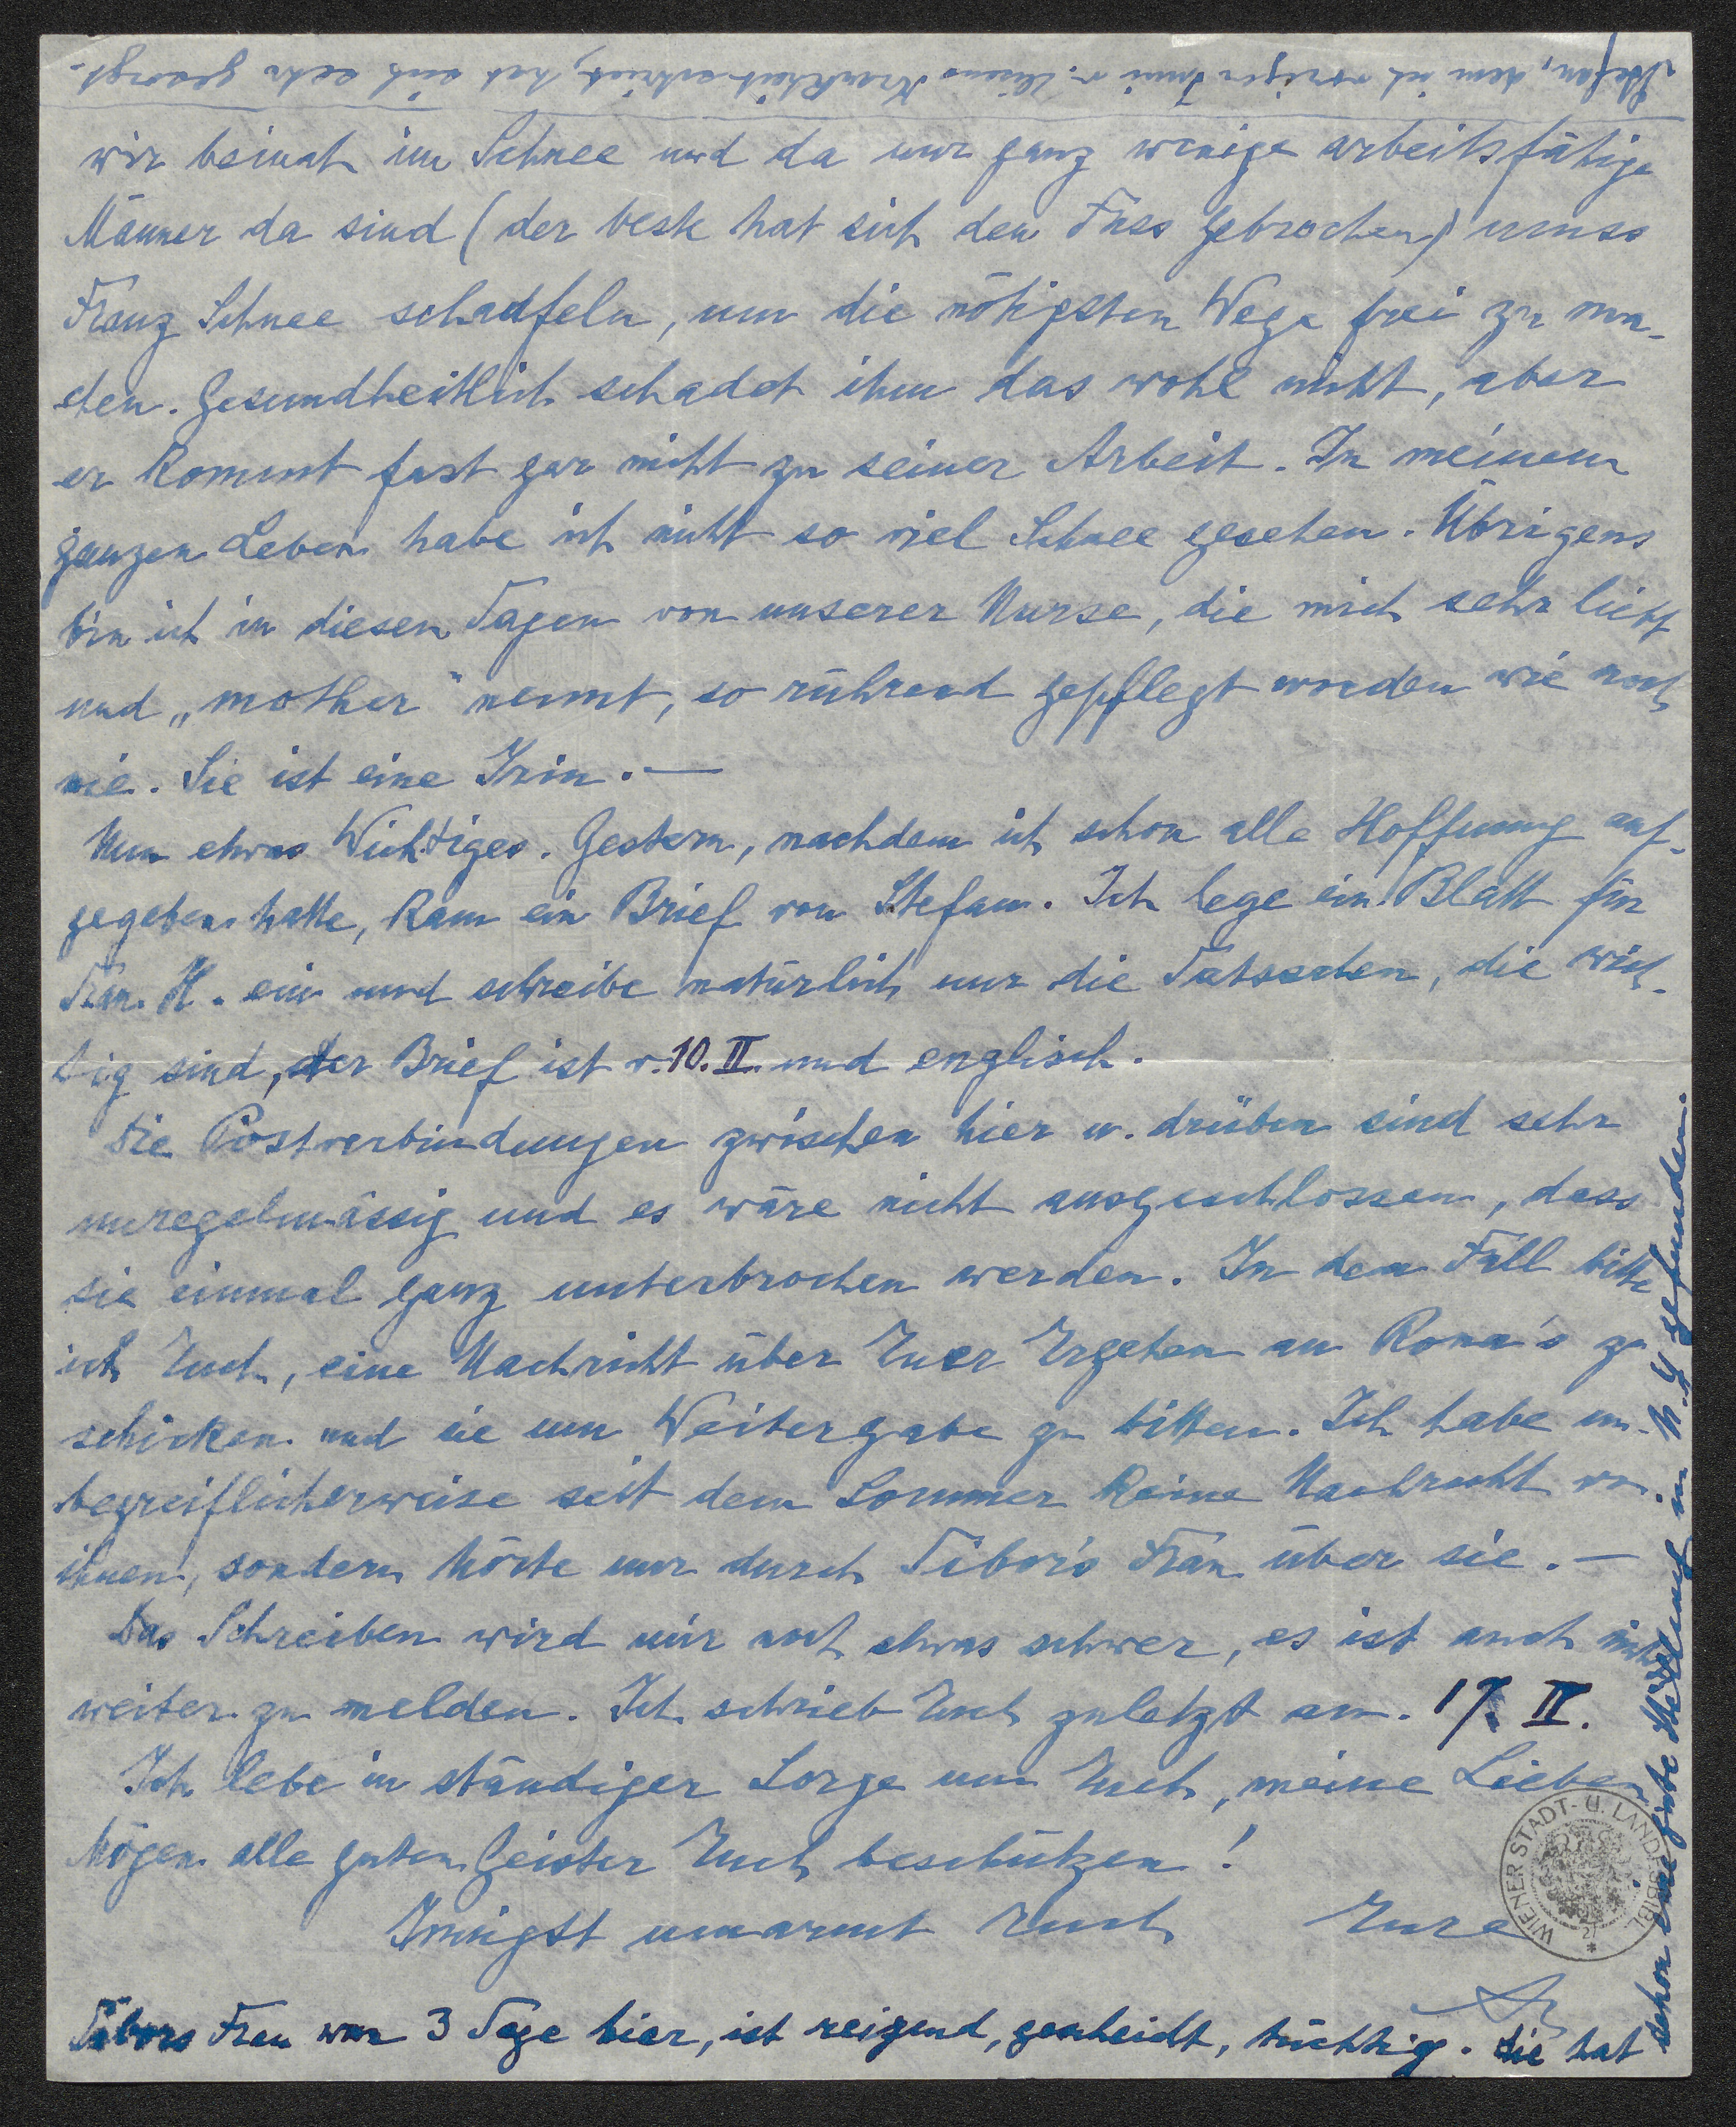 wir beinah im Schnee und da nur ganz wenige arbeitsfähige
Männer da sind (der beste hat sich den Fuss gebrochen) muss
Franz Schnee schaufeln, um die nötigsten Wege frei zu ma-
chen. Gesundheitlich schadet ihm das wohl nicht, aber
er kommt fast gar nicht zu seiner Arbeit. In meinem
ganzen Leben habe ich nicht so viel Schnee gesehen. Übrigens
bin ich in diesen Tagen von unserer Nurse, die mich sehr liebt
und „mother" nennt, so rührend gepflegt worden wie noch
nie. Sie ist eine Irin. —
Nun etwas Wichtiges. Gestern, nachdem ich schon alle Hoffnung auf-
gegeben hatte, kam ein Brief von Stefan. Ich lege ein Blatt für
Frau H. ein und schreibe natürlich nur die Tatsachen, die wich-
tig sind, der Brief ist v. 10. II. und englisch.
Die Postverbindungen zwischen hier u. drüben sind sehr
unregelmässig und es wäre nicht ausgeschlossen, dass
sie einmal ganz unterbrochen werden. In dem Fall bitte
ich Euch, eine Nachricht über Euer Ergehen an Rona's zu
schicken und sie um Weitergabe zu bitten. Ich habe un-
begreiflicherweise seit dem Sommer keine Nachricht von
ihnen, sondern hörte nur durch Tibor's Frau über sie. —
Das Schreiben wird mir noch etwas schwer, es ist auch nichts
weiter zu melden. Ich schrieb Euch zuletzt am 17. II.
Ich lebe in ständiger Sorge um Euch, meine Lieben
Mögen alle guten Geister Euch beschützen!
Innigst umarmt Euch Eure
Tibors Frau war 3 Tage hier, ist reizend, gescheidt, tüchtig. Sie hat
schon eine feste Stellung in N.Y. gefunden.
Stefan, dem ich vorigen Juni v. Krankheit schrieb, hat sich sehr gesorgt.
WIENER STADT- U. LANDESBIBL.